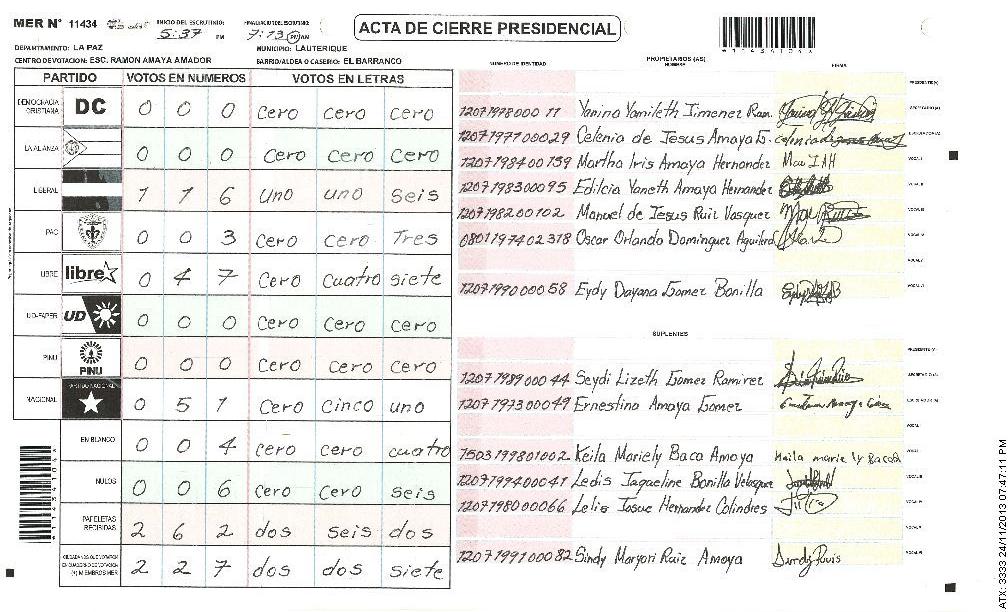 MER N° 11434
INICIO DEL ESCRUTINIO:
5:37 PM
FINALIZACION DEL ESCRUTINIO:
7:13 PM AM
ACTA DE CIERRE PRESIDENCIAL
DEPARTAMENTO: LA PAZ
MUNICIPIO: LAUTERIQUE
CENTRO DE VOTACION: ESC. RAMON AMAYA AMADOR
BARRIO/ALDEA O CASERIO: EL BARRANCO
PARTIDO VOTOS EN NUMEROS VOTOS EN LETRAS
DEMOCRACIA CRISTIANA DC 0 0 0 Cero Cero Cero
LA ALIANZA 0 0 0 Cero Cero Cero
LIBERAL 1 1 6 Uno uno Seis
PAC 0 0 3 Cero Cero Tres
LIBRE libre 0 4 7 Cero Cuatro siete
UD-FAPER UD 0 0 0 Cero Cero Cero
PINU PINU 0 0 0 Cero Cero Cero
NACIONAL PARTIDO NACIONAL 0 5 1 Cero Cinco uno
EN BLANCO 0 0 4 Cero cero cuatro
NULOS 0 0 6 Cero Cero Seis
PAPELETAS RECIBIDAS 2 6 2 dos seis dos
CIUDADANOS QUE VOTARON EN CUADERNO DE VOTACION (+) MIEMBROS MER 2 2 7 dos dos siete
NUMERO DE IDENTIDAD
PROPIETARIOS (AS)
NOMBRE
FIRMA
PRESIDENTE(A)
1207197800011 Yanina Yamileth Jimenez Ram.
1207197700029 Celenia de Jesus Amaya G.
1207198400139 Martha Iris Amaya Hernandez Mar IAH
1207198300095 Edilcia Yaneth Amaya Hernandez
1207198200102 Manuel de Jesus Ruiz Vasquez
0801197402318 Oscar Orlando Dominguez Aguilera
1207199000058 Eydy Dayana Gomez Bonilla
SUPLENTES
PRESIDENTE(A)
1207198900044 Seydi Lizeth Gomez Ramirez
1207197300049 Ernestina Amaya Gomez
1503199801002 Keila Mariely Baca Amaya Keila mariely Baca
1207199400041 Ledis Jaqueline Bonilla Velasquez
1207198000066 Lelis Josue Hernandez Colindres
1207199100082 Sindy Maryori Ruiz Amaya Sindy Ruis
ATX: 3333 24/11/2013 07:47:11 PM